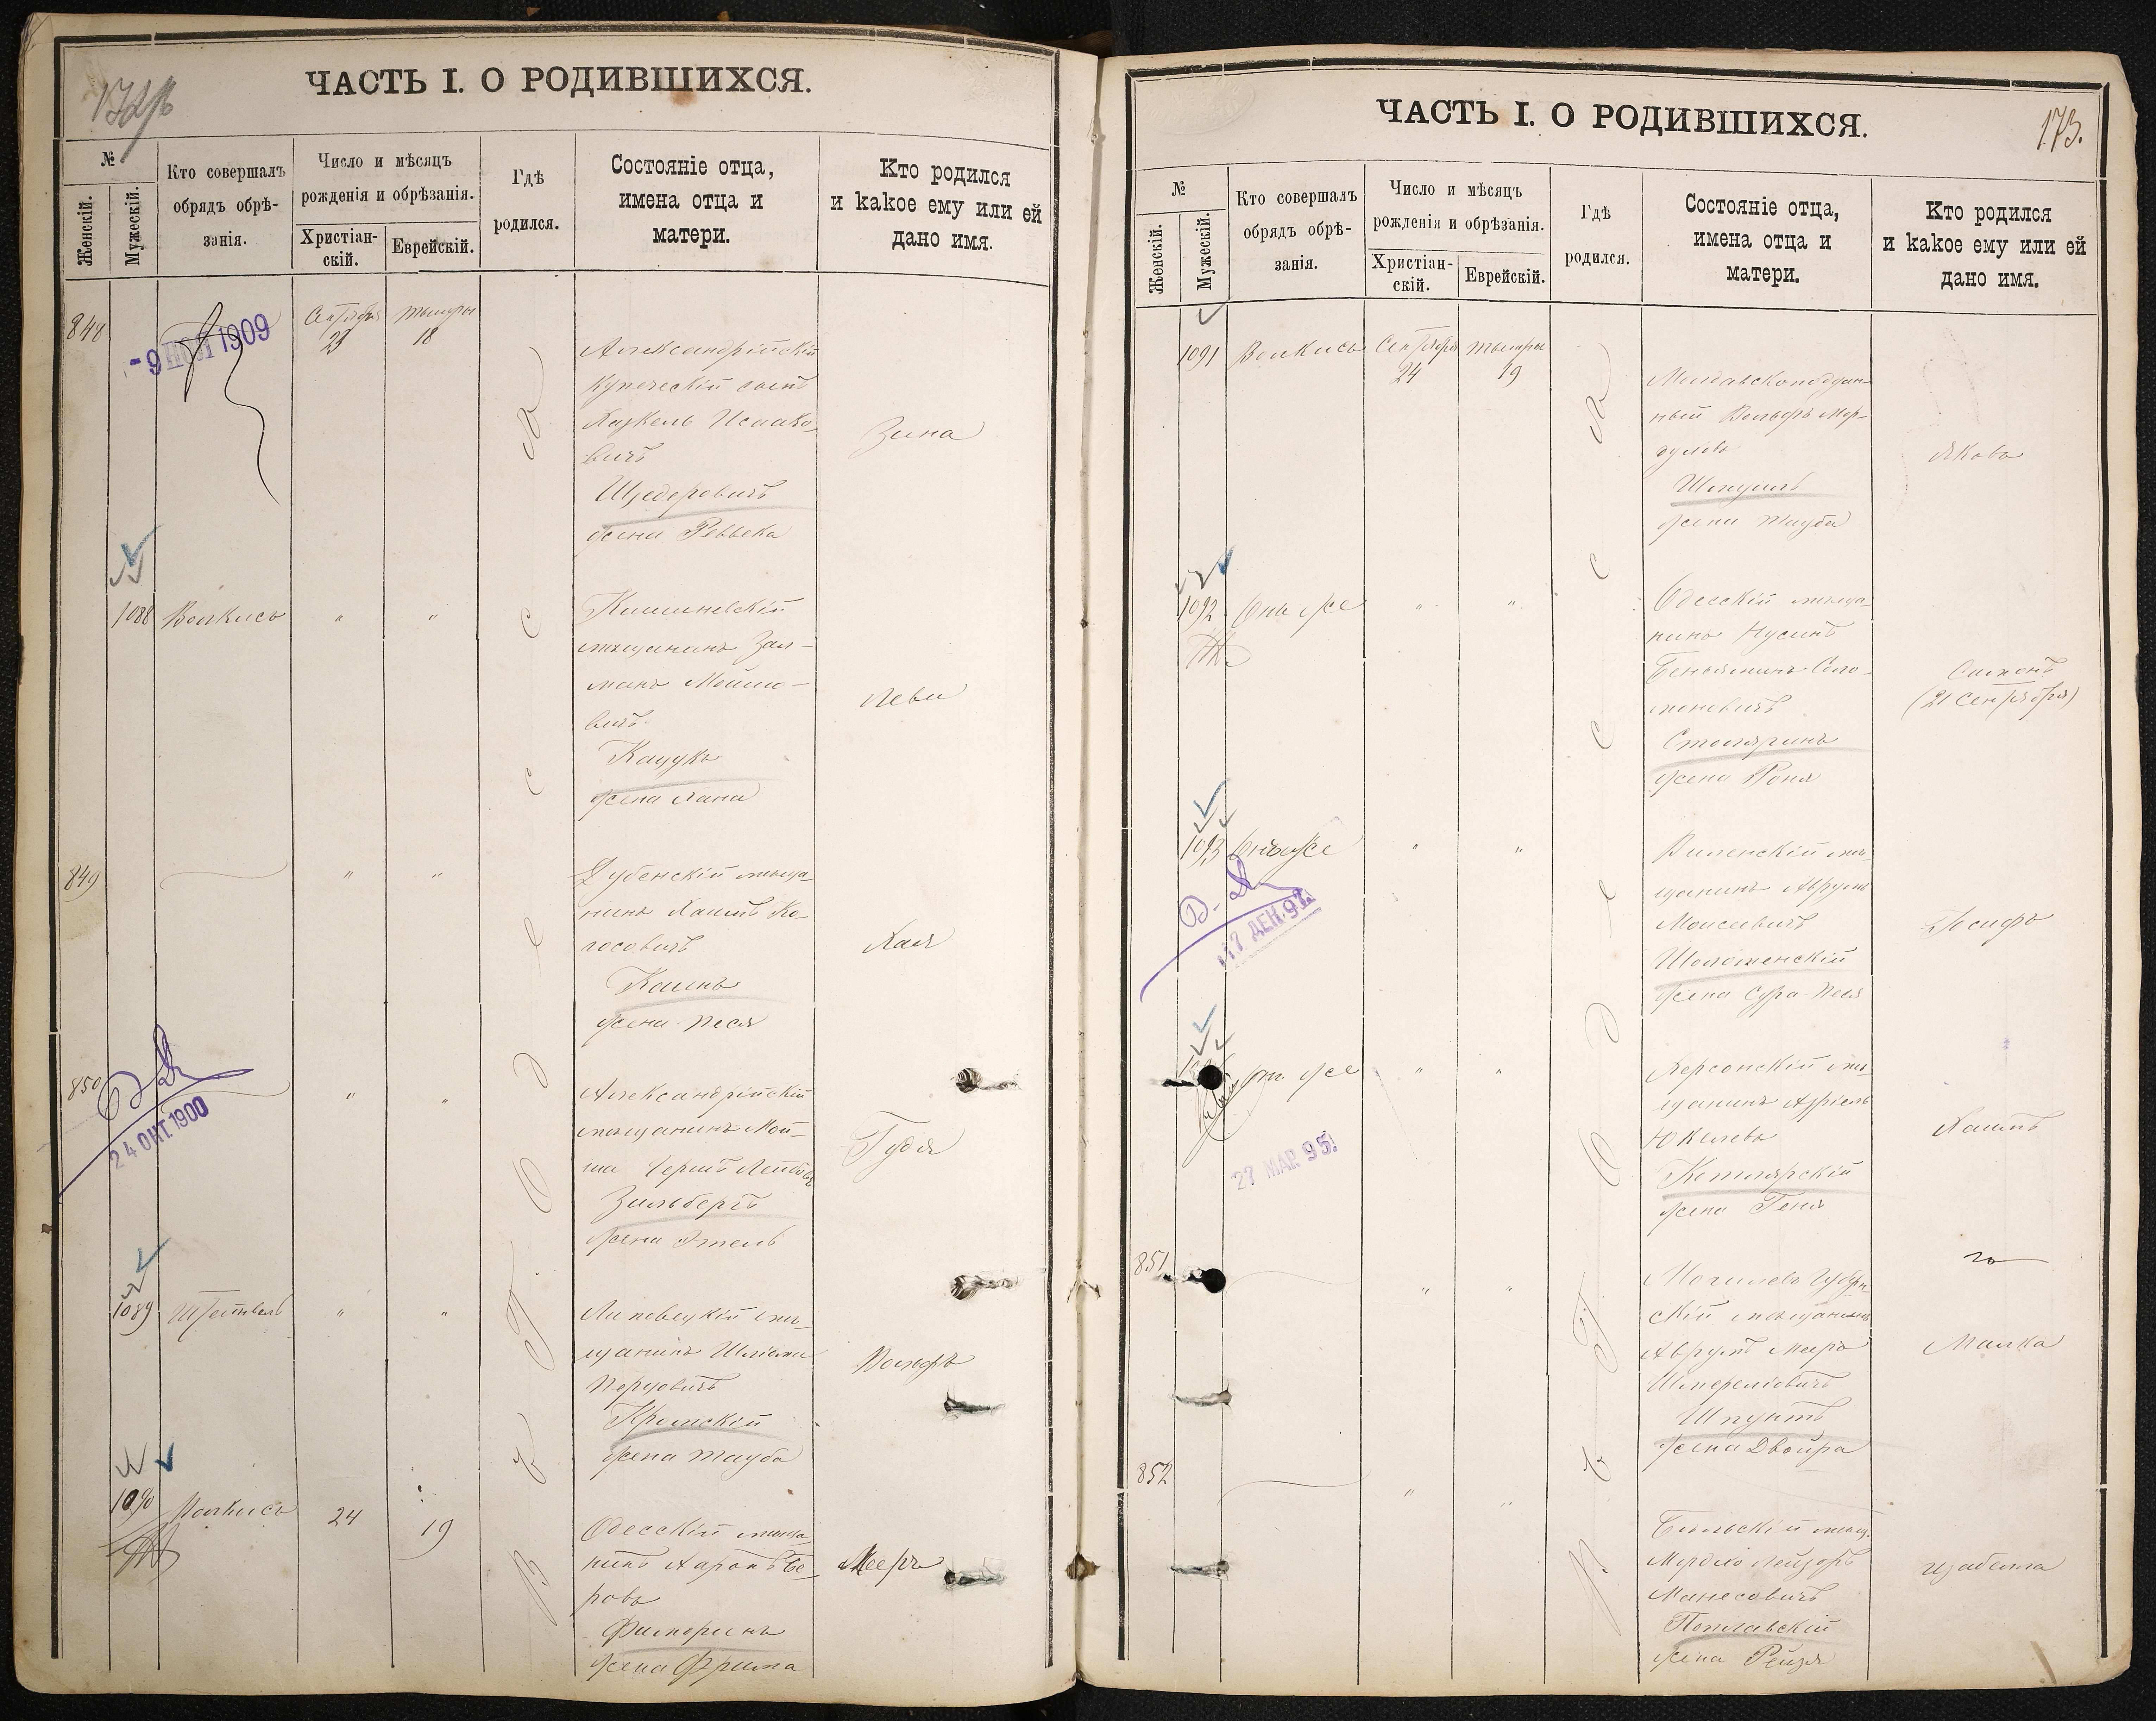 172/б
ЧАСТЬ I. О РОДИВШИХСЯ.
№
Женскій.
Мужескій.
Кто совершалъ
обрядъ обрѣ-
занія.
Число и мѣсяцъ
рожденія и обрѣзанія.
Христіан-
скій.
Еврейскій.
Гдѣ
родился.
Состояніе отца,
имена отца и
матери.
Кто родился
и какое ему или ей
дано имя.
848
- 9 НОЯ 1909
Сентября
23
Тышры
18
Александрійскій
купеческій сынъ
Хаскель Исаако-
вичъ
Щедеровичъ
жена Реввека
Зина
1088
Волкисъ
"
"
Кишиневскій
мѣщанинъ Зал-
манъ Мошко-
вичъ
жена Хана
Леви
849
"
"
Дубенскій мѣща-
нинъ Хаимъ
жена Песя
Хая
850
24 ОКТ. 1900
"
"
Александрійскій
мѣщанинъ Мой-
ша Лейбовъ
Зильбергъ
жена Этель
Гудя
1089
"
"
Липовецкій мѣ-
щанинъ Шліома
Перцовичъ
Кримскій
жена Тауба
Вольфъ
1090
Волкисъ
24
19
Одесскій мѣща-
нинъ Ааронъ Бе-
ровъ
жена Фрима
Мееръ
въ г. Одессѣ
173.
ЧАСТЬ I. О РОДИВШИХСЯ.
№
Женскій.
Мужескій.
Кто совершалъ
обрядъ обрѣ-
занія.
Число и мѣсяцъ
рожденія и обрѣзанія.
Христіан-
скій.
Еврейскій.
Гдѣ
родился.
Состояніе отца,
имена отца и
матери.
Кто родился
и какое ему или ей
дано имя.
1091
Волкисъ
Сентября
24
Тышры
19
Молдавскоподдан-
ный Вольфъ Мор-
духовъ
жена Тауба
Яковъ
1092
Онъ же
"
"
Одесскій мѣща-
нинъ Нусинъ
Беньяминъ Соло-
моновичъ
Столяринъ
жена Роня
Симонъ
(21 Сентября)
1093
Онъ же
17 ДЕК. 97
"
"
Виленскій мѣ-
щанинъ Аврумъ
Моисеевичъ
жена Сура-Песя
Іосифъ
Онъ же
27 МАР. 95.
"
"
Херсонскій мѣ-
щанинъ Азріель
Юкелевъ
Котлярскій
жена Геня
Хаимъ
851
"
"
Могилевъ Губерн-
скій мѣщанинъ
Аврумъ Меръ
Шмереліовичъ
Шпунтъ
жена Двойра
Малка
852
"
"
Бѣльскій мѣщ.
Мордко Лейзоръ
Манесовичъ
Полтавскій
жена Рейзя
Изабелла
въ г. Одессѣ